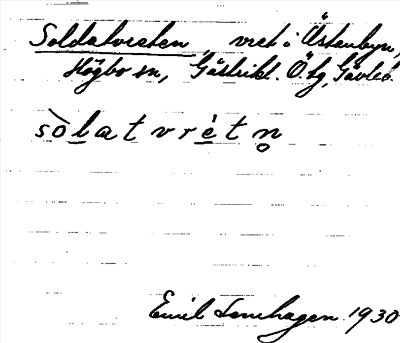 Soldatvreten, vret i Östanbyn,
Högbo sn, Gästrikl. Ö. tg, Gävleb.
sòlatvrètn̥
Emil Lenhagen 1930